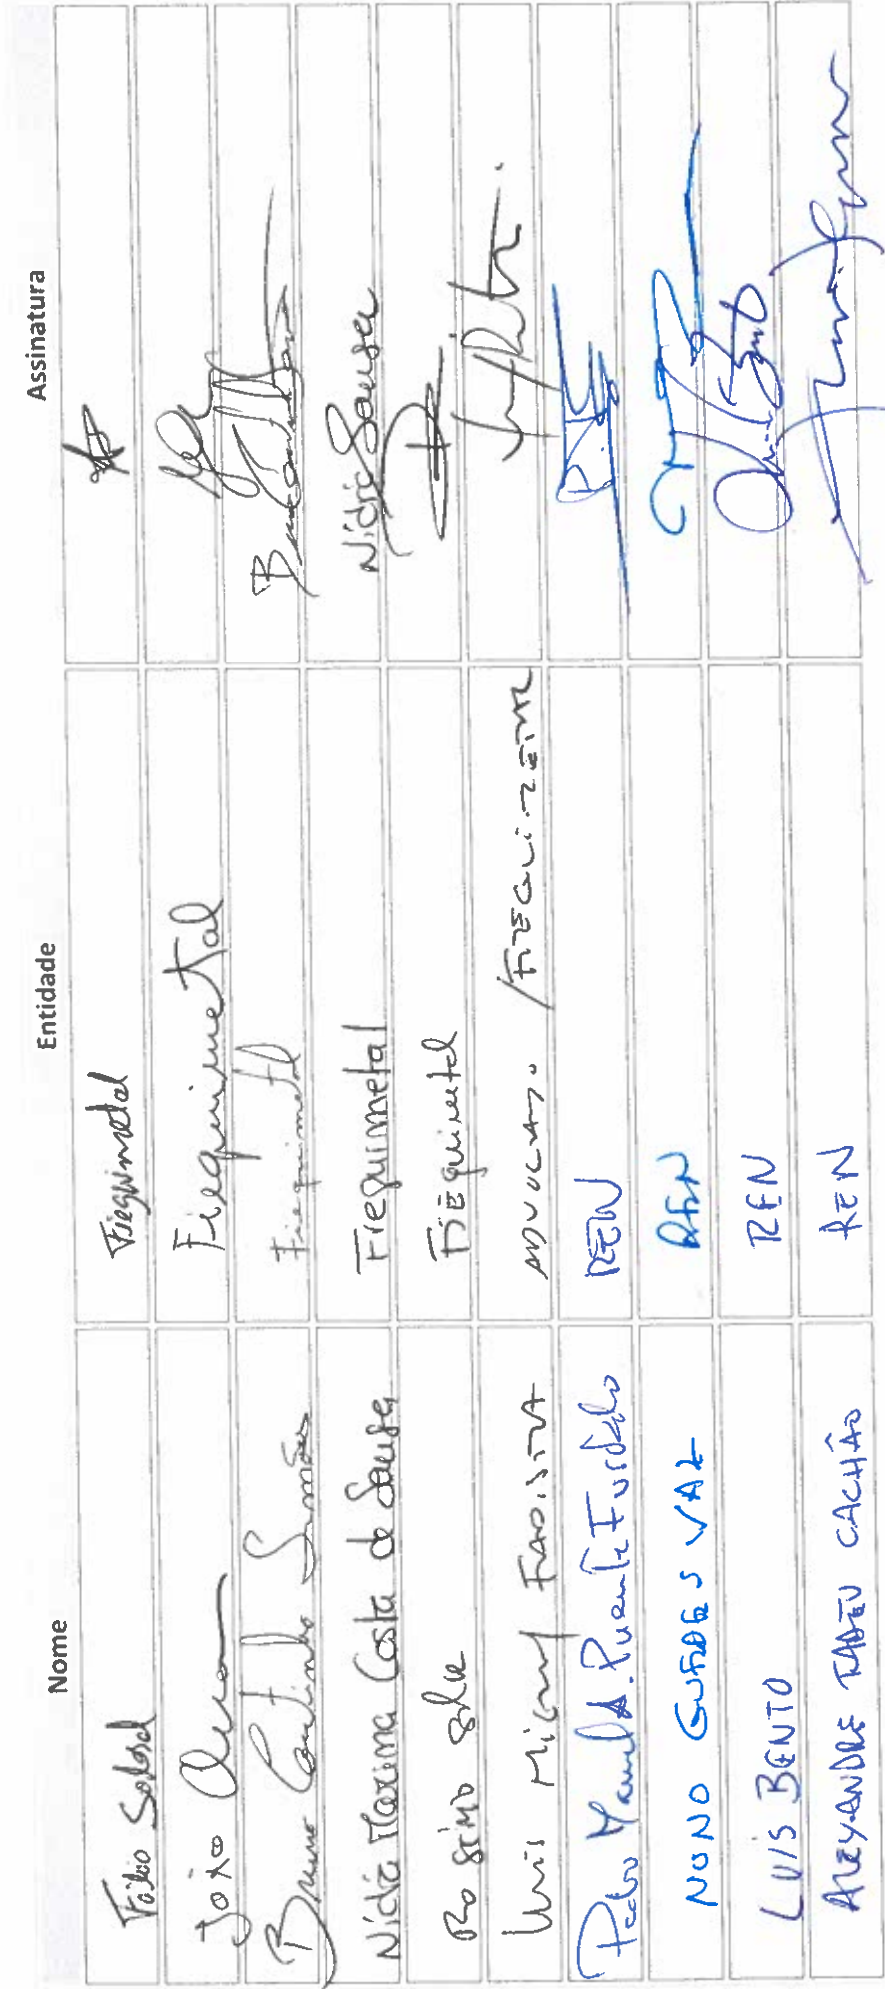 Nome Entidade Assinatura
Fábio Fiequimetal
João Fiequimetal
Bruno Coutinho Simões Fiequimetal
Nídia Marina Costa de Sousa Fiequimetal Nídia Sousa
Rogério Silva Fiequimetal
Luís Miguel Advogado / Fiequimetal
Pedro Manuel A. Puente Furtado REN
NUNO GUEDES VAZ REN
LUÍS BENTO REN
ALEXANDRE TADEU CACHÃO REN